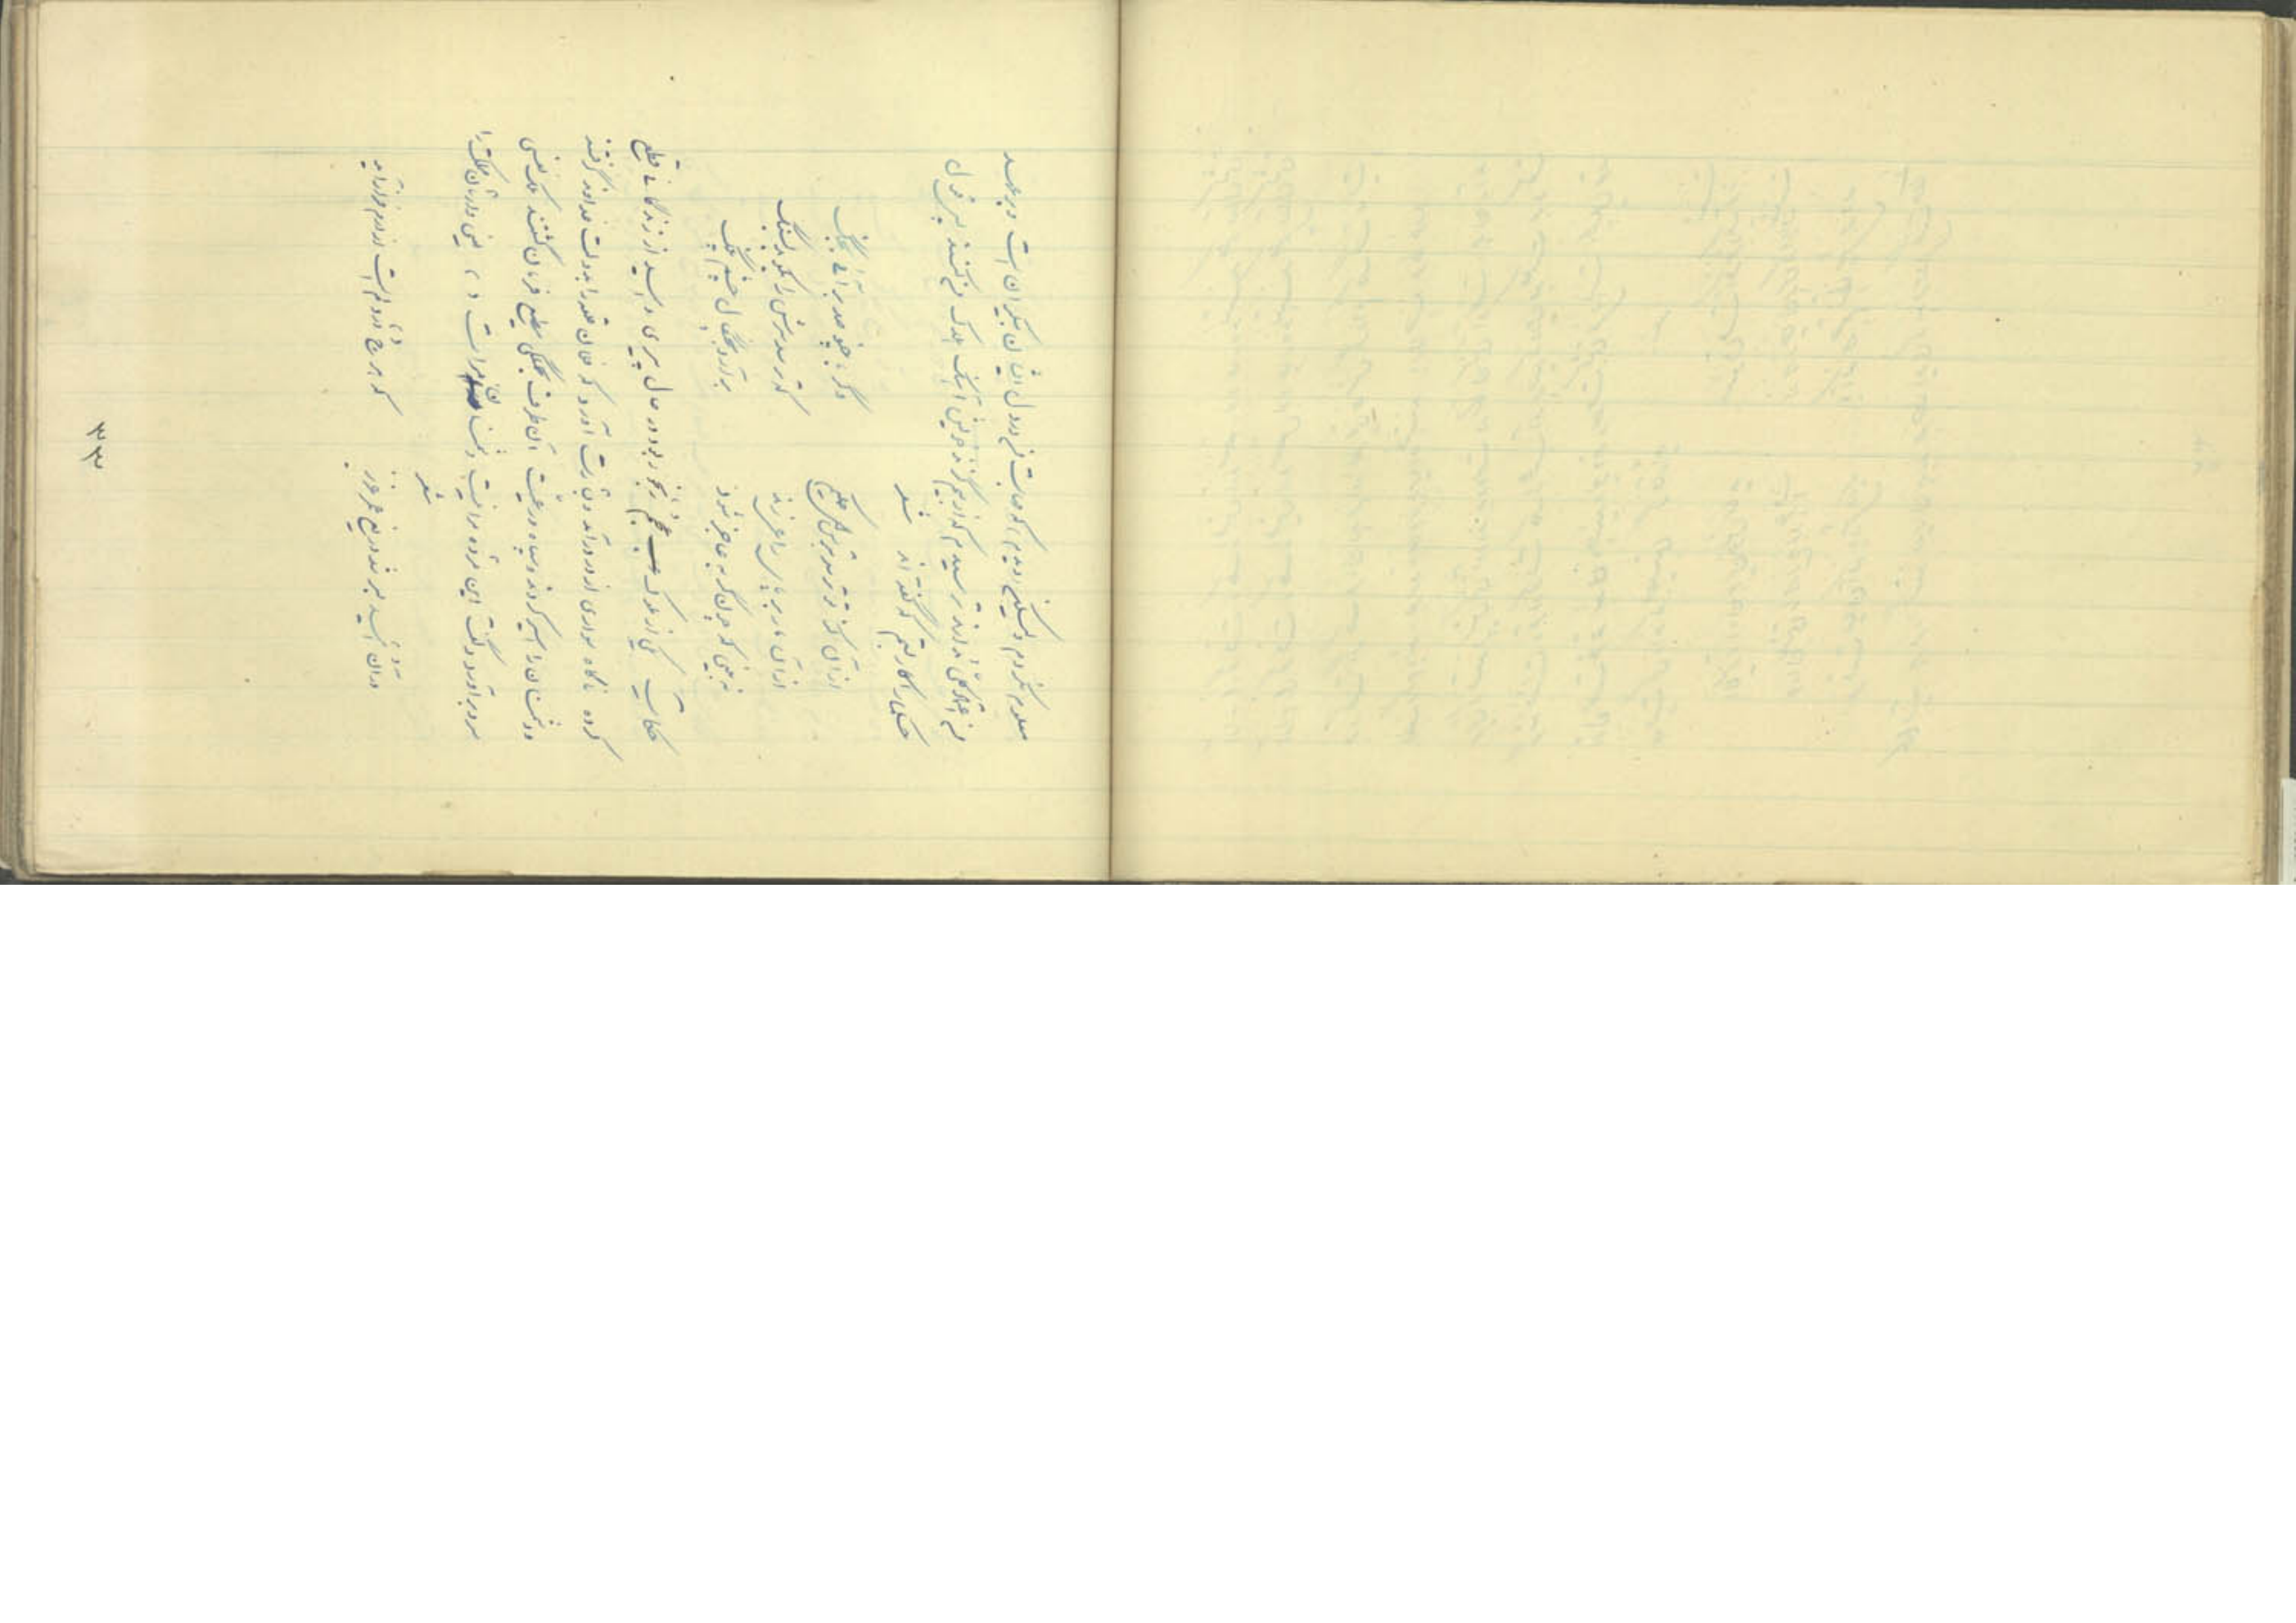 معلوم نکردم ولیکن دیدم که مهابت من در دل ایشان بیکران است و بر عهد
من اعتماد کلی ندارند ترسیدم که از بیم گزند خویش آهنگ هلاک من کنند پس قول
حکما را کار بستم که گفته‌اند شعر
از آن کز تو ترسد بترس ای حکیم وگر با چو صد بر آئی بجنگ
از آن مار بر پای راعی زند که ترسد سرش را بکوبد بسنگ
نه بینی که چون گربه عاجز شود برآرد بچنگال چشم پلنگ
حکایت یکی از ملوک عجم رنجور بود در حال پیری و امید از زندگانی قطع
کرده ناگاه سواری از در درآمد و بشارت آورد که فلان قلعه را بدولت خداوند گرفتند
و دشمنان را اسیر کردند و سپاه و رعیت آن طرف بجملگی مطیع فرمان گشتند ملک نفسی
سرد برآورد و گفت این مژده مرا نیست دشمنانم راست یعنی وارثان ملک را
شعر
در آن امید بسر شد دریغ عمر عزیز که هر چه در دلم است از درم فراز آید
۳۳